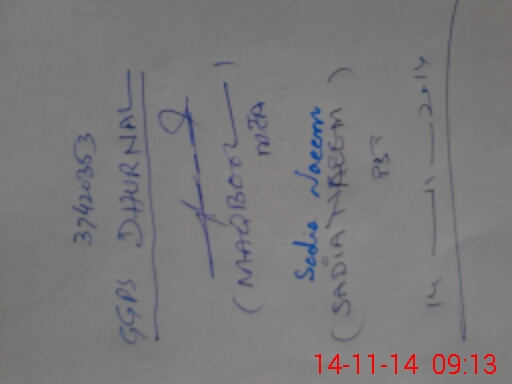 37420353
GGPS DHURNAL
(MAQBOOL)
MEA
Sadia Naeem
(SADIA NAEEM)
PST
14 — 11 — 2014
14-11-14 09:13